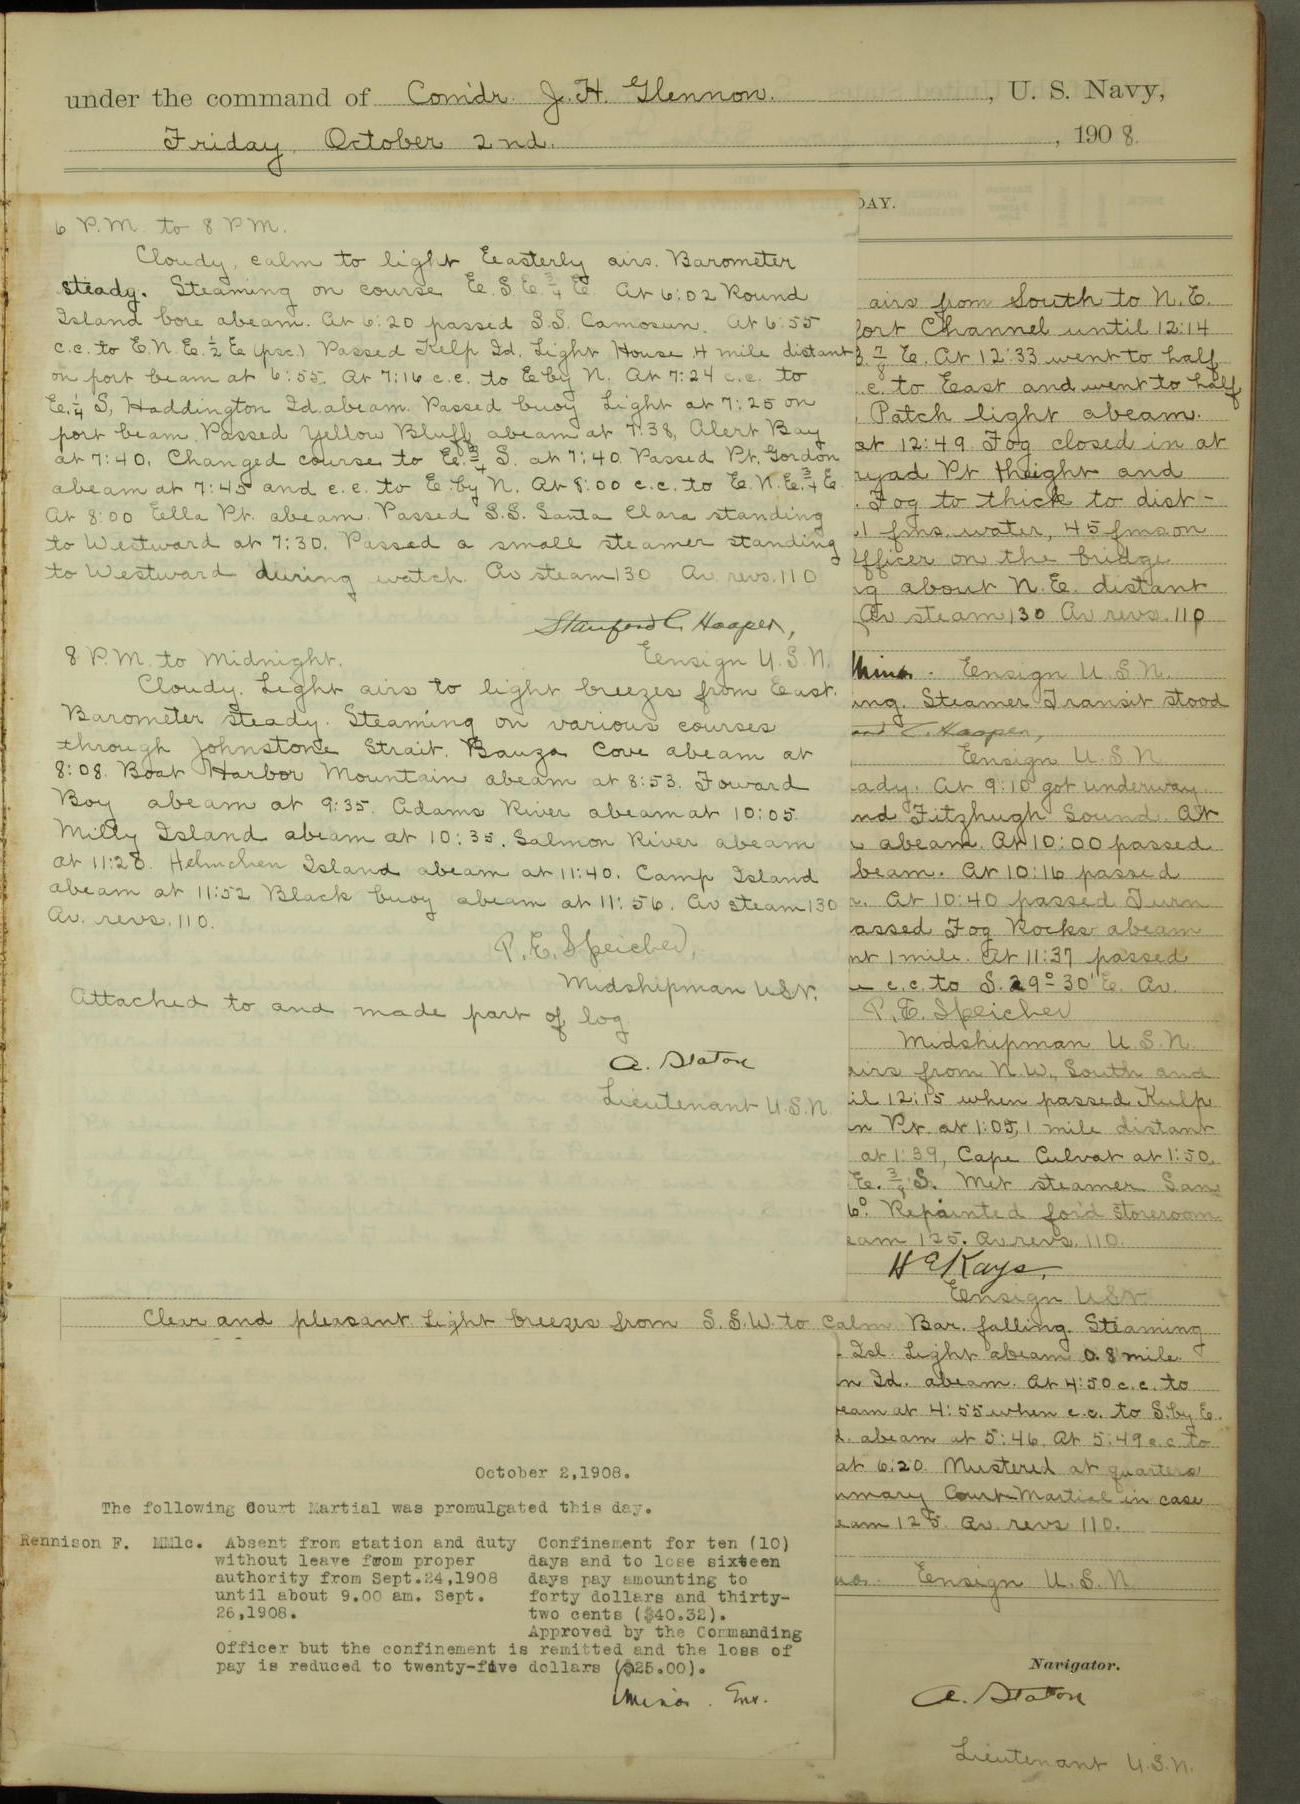 under the command of Comdr. J. H. Glennon. , U. S. Navy,
Friday, October 2nd. , 1908.
6 P.M. to 8 P.M.
Cloudy, calm to light Easterly airs. Barometer
steady. Steaming on course E.S.E. 3/4 E. At 6:02 Round
Island bore abeam. At 6:20 passed S.S. Camosun. At 6:55
c.c. to E.N.E. 1/2 E (psc.) Passed Kelp Id. Light House .4 mile distant
on port beam at 6:55. At 7:16 c.c. to E by N. At 7:24 c.c. to
E. 1/4 S, Haddington Id. abeam. Passed buoy Light at 7:25 on
port beam. Passed Yellow Bluff abeam at 7:38, Alert Bay
at 7:40. Changed course to E. 3/4 S. at 7:40. Passed Pt. Gordon
abeam at 7:45 and c.c. to E. by N. At 8:00 c.c. to E.N.E. 3/4 E.
At 8:00 Ella Pt. abeam. Passed S.S. Santa Clara standing
to Westward at 7:30. Passed a small steamer standing
to Westward during watch. Av steam 130 Av. revs. 110
Stanford C. Hooper,
Ensign U.S.N.
8 P.M. to Midnight.
Cloudy. Light airs to light breezes from East.
Barometer steady. Steaming on various courses
through Johnstone Strait. Bauza Cove abeam at
8:08. Boat Harbor Mountain abeam at 8:53. Foward
Boy abeam at 9:35. Adams River abeam at 10:05
Milly Island abeam at 10:35. Salmon River abeam
at 11:28. Helmchen Island abeam at 11:40. Camp Island
abeam at 11:52 Black buoy abeam at 11:56. Av steam 130
Av. revs. 110.
P. E. Speicher,
Midshipman USN.
Attached to and made part of log
A. Staton
Lieutenant U.S.N.
DAY.
airs from South to N.E.
fort Channel until 12:14
7/8 E. At 12:33 went to half
c. to East and went to half
Patch light abeam.
at 12:49. Fog closed in at
ryad Pt height and
. Fog to thick to dist-
fms. water, 45 fms on
fficer on the bridge
ng about N.E. distant
Av steam 130 Av revs. 110
Ensign U.S.N.
ing. Steamer Transit stood
C. Hooper,
Ensign U.S.N.
ady. At 9:10 got underway
nd Fitzhugh Sound. At
abeam. At 10:00 passed
beam. At 10:16 passed
. At 10:40 passed Turn
assed Fog Rocks abeam
nt 1 mile. At 11:37 passed
c.c. to S. 29° 30' E. Av.
P. E. Speicher
Midshipman U.S.N.
airs from N.W., South and
il 12:15 when passed Kulp
n Pt. at 1:05, 1 mile distant
at 1:39, Cape Culvat at 1:50.
E. 3/4 S. Met steamer San
6°. Repainted for'd storeroom
eam 125. Av. revs. 110.
H E Kays,
Ensign USN.
Clear and pleasant. Light breezes from S.S.W. to calm Bar. falling. Steaming
Isl. Light abeam 0.8 mile.
n Id. abeam. At 4:50 c.c. to
eam at 4:55 when c.c. to S. by E.
d. abeam at 5:46. At 5:49 c.c. to
at 6:20. Mustered at quarters
mmary Court-Martial in case
eam 125. Av. revs 110.
Ensign U.S.N.
October 2,1908.
The following Court Martial was promulgated this day.
Rennison F. MM1c. Absent from station and duty Confinement for ten (10)
without leave from proper days and to lose sixteen
authority from Sept.24,1908 days pay amounting to
until about 9.00 am. Sept. forty dollars and thirty-
26,1908. two cents ($40.32).
Approved by the Commanding
Officer but the confinement is remitted and the loss of
pay is reduced to twenty-five dollars ($25.00).
Navigator.
A. Staton
Lieutenant U.S.N.